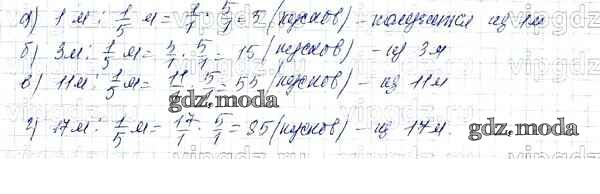 а) 1 м : 1/5 м = 1/1 · 5/1 = 5 (кусков) – получится из 1 м
б) 3 м : 1/5 м = 3/1 · 5/1 = 15 (кусков) – из 3 м
в) 11 м : 1/5 м = 11/1 · 5/1 = 55 (кусков) – из 11 м
gdz.moda
г) 17 м : 1/5 м = 17/1 · 5/1 = 85 (кусков) – из 17 м.
gdz.moda